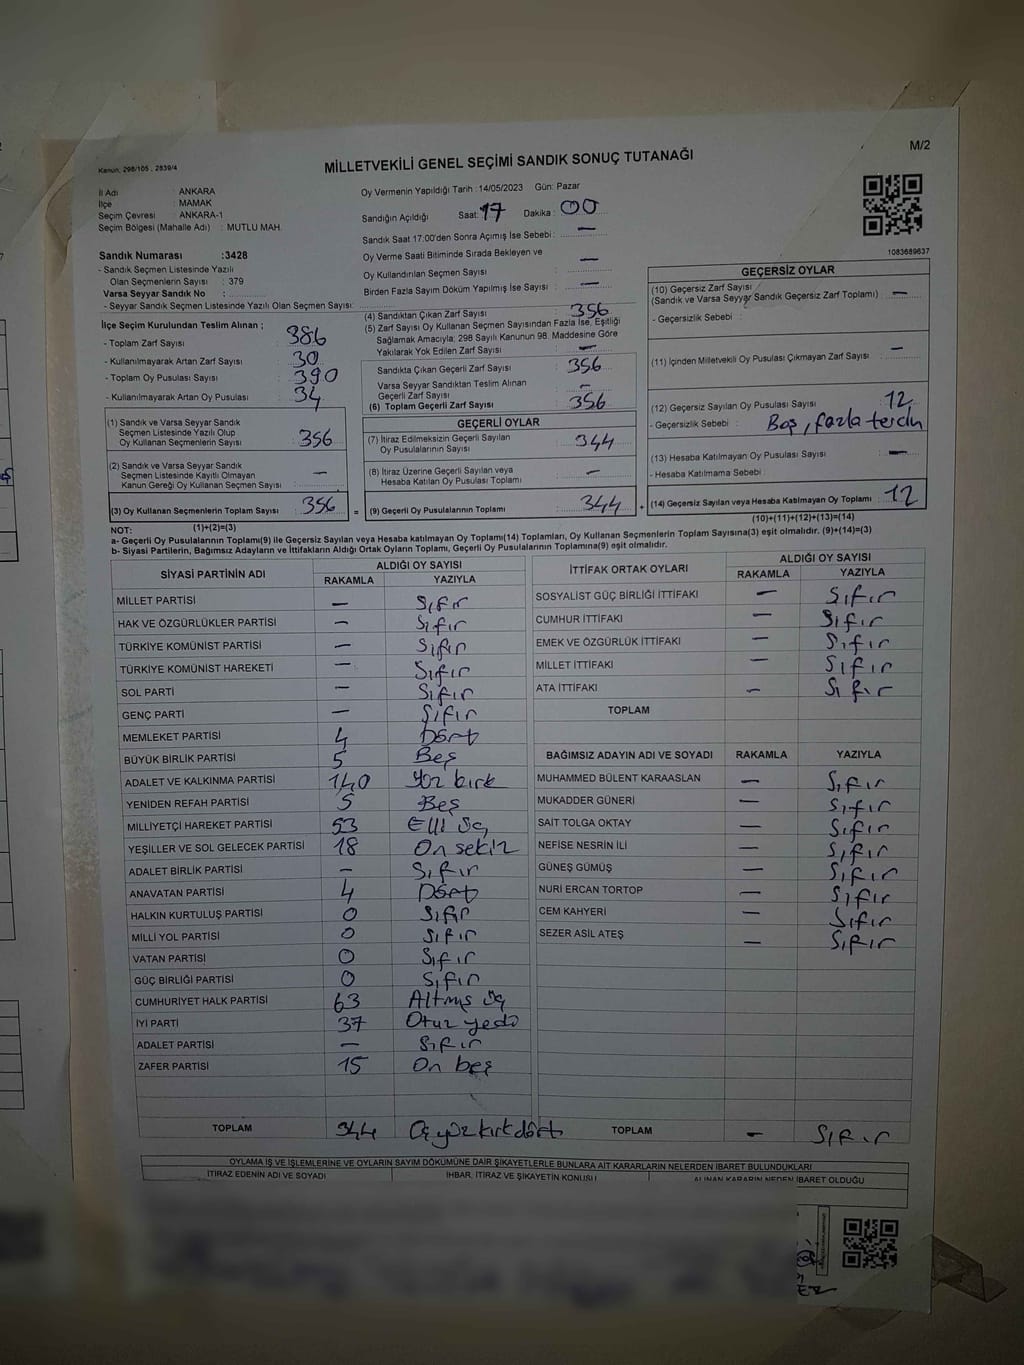 M/2
Kanun, 298/105 , 2839/4
MİLLETVEKİLİ GENEL SEÇİMİ SANDIK SONUÇ TUTANAĞI
İl Adı : ANKARA
İlçe : MAMAK
Seçim Çevresi : ANKARA-1
Seçim Bölgesi (Mahalle Adı) : MUTLU MAH.
Oy Vermenin Yapıldığı Tarih : 14/05/2023 Gün: Pazar
Sandığın Açıldığı Saat: 17 Dakika : 00
Sandık Saat 17:00'den Sonra Açımış İse Sebebi : —
Oy Verme Saati Bitiminde Sırada Bekleyen ve
Oy Kullandırılan Seçmen Sayısı : —
Birden Fazla Sayım Döküm Yapılmış İse Sayısı : —
1083689637
Sandık Numarası :3428
- Sandık Seçmen Listesinde Yazılı
Olan Seçmenlerin Sayısı : 379
Varsa Seyyar Sandık No :
- Seyyar Sandık Seçmen Listesinde Yazılı Olan Seçmen Sayısı:
İlçe Seçim Kurulundan Teslim Alınan ;
- Toplam Zarf Sayısı : 386
- Kullanılmayarak Artan Zarf Sayısı : 30
- Toplam Oy Pusulası Sayısı : 390
- Kullanılmayarak Artan Oy Pusulası : 34
(1) Sandık ve Varsa Seyyar Sandık
Seçmen Listesinde Yazılı Olup
Oy Kullanan Seçmenlerin Sayısı : 356
(2) Sandık ve Varsa Seyyar Sandık
Seçmen Listesinde Kayıtlı Olmayan
Kanun Gereği Oy Kullanan Seçmen Sayısı : —
(3) Oy Kullanan Seçmenlerin Toplam Sayısı : 356
(4) Sandıktan Çıkan Zarf Sayısı : 356
(5) Zarf Sayısı Oy Kullanan Seçmen Sayısından Fazla İse, Eşitliği
Sağlamak Amacıyla; 298 Sayılı Kanunun 98. Maddesine Göre
Yakılarak Yok Edilen Zarf Sayısı : —
Sandıkta Çıkan Geçerli Zarf Sayısı : 356
Varsa Seyyar Sandıktan Teslim Alınan
Geçerli Zarf Sayısı : —
(6) Toplam Geçerli Zarf Sayısı : 356
GEÇERLİ OYLAR
(7) İtiraz Edilmeksizin Geçerli Sayılan
Oy Pusulalarının Sayısı : 344
(8) İtiraz Üzerine Geçerli Sayılan veya
Hesaba Katılan Oy Pusulası Toplamı : —
= (9) Geçerli Oy Pusulalarının Toplamı : 344
GEÇERSİZ OYLAR
(10) Geçersiz Zarf Sayısı :
(Sandık ve Varsa Seyyar Sandık Geçersiz Zarf Toplamı) —
- Geçersizlik Sebebi :
(11) İçinden Milletvekili Oy Pusulası Çıkmayan Zarf Sayısı : —
(12) Geçersiz Sayılan Oy Pusulası Sayısı : 12
- Geçersizlik Sebebi : Boş, fazla tercih
(13) Hesaba Katılmayan Oy Pusulası Sayısı : —
- Hesaba Katılmama Sebebi :
+ (14) Geçersiz Sayılan veya Hesaba Katılmayan Oy Toplamı : 12
NOT: (1)+(2)=(3)
(10)+(11)+(12)+(13)=(14)
a- Geçerli Oy Pusulalarının Toplamı(9) ile Geçersiz Sayılan veya Hesaba katılmayan Oy Toplamı(14) Toplamları, Oy Kullanan Seçmenlerin Toplam Sayısına(3) eşit olmalıdır. (9)+(14)=(3)
b- Siyasi Partilerin, Bağımsız Adayların ve İttifakların Aldığı Ortak Oyların Toplamı, Geçerli Oy Pusulalarının Toplamına(9) eşit olmalıdır.
SİYASİ PARTİNİN ADI ALDIĞI OY SAYISI
RAKAMLA YAZIYLA
MİLLET PARTİSİ — Sıfır
HAK VE ÖZGÜRLÜKLER PARTİSİ — Sıfır
TÜRKİYE KOMÜNİST PARTİSİ — Sıfır
TÜRKİYE KOMÜNİST HAREKETİ — Sıfır
SOL PARTİ — Sıfır
GENÇ PARTİ — Sıfır
MEMLEKET PARTİSİ 4 Dört
BÜYÜK BİRLİK PARTİSİ 5 Beş
ADALET VE KALKINMA PARTİSİ 140 Yüz kırk
YENİDEN REFAH PARTİSİ 5 Beş
MİLLİYETÇİ HAREKET PARTİSİ 53 Elli üç
YEŞİLLER VE SOL GELECEK PARTİSİ 18 On sekiz
ADALET BİRLİK PARTİSİ — Sıfır
ANAVATAN PARTİSİ 4 Dört
HALKIN KURTULUŞ PARTİSİ 0 Sıfır
MİLLİ YOL PARTİSİ 0 Sıfır
VATAN PARTİSİ 0 Sıfır
GÜÇ BİRLİĞİ PARTİSİ 0 Sıfır
CUMHURİYET HALK PARTİSİ 63 Altmış üç
İYİ PARTİ 37 Otuz yedi
ADALET PARTİSİ — Sıfır
ZAFER PARTİSİ 15 On beş
TOPLAM 344 Üçyüzkırkdört
İTTİFAK ORTAK OYLARI ALDIĞI OY SAYISI
RAKAMLA YAZIYLA
SOSYALİST GÜÇ BİRLİĞİ İTTİFAKI — Sıfır
CUMHUR İTTİFAKI — Sıfır
EMEK VE ÖZGÜRLÜK İTTİFAKI — Sıfır
MİLLET İTTİFAKI — Sıfır
ATA İTTİFAKI — Sıfır
TOPLAM
BAĞIMSIZ ADAYIN ADI VE SOYADI RAKAMLA YAZIYLA
MUHAMMED BÜLENT KARAASLAN — Sıfır
MUKADDER GÜNERİ — Sıfır
SAİT TOLGA OKTAY — Sıfır
NEFİSE NESRİN İLİ — Sıfır
GÜNEŞ GÜMÜŞ — Sıfır
NURİ ERCAN TORTOP — Sıfır
CEM KAHYERİ — Sıfır
SEZER ASİL ATEŞ — Sıfır
TOPLAM — Sıfır
OYLAMA İŞ VE İŞLEMLERİNE VE OYLARIN SAYIM DÖKÜMÜNE DAİR ŞİKAYETLERLE BUNLARA AİT KARARLARIN NELERDEN İBARET BULUNDUKLARI
İTİRAZ EDENİN ADI VE SOYADI İHBAR, İTİRAZ VE ŞİKAYETİN KONUSU ALINAN KARARIN NEDEN İBARET OLDUĞU